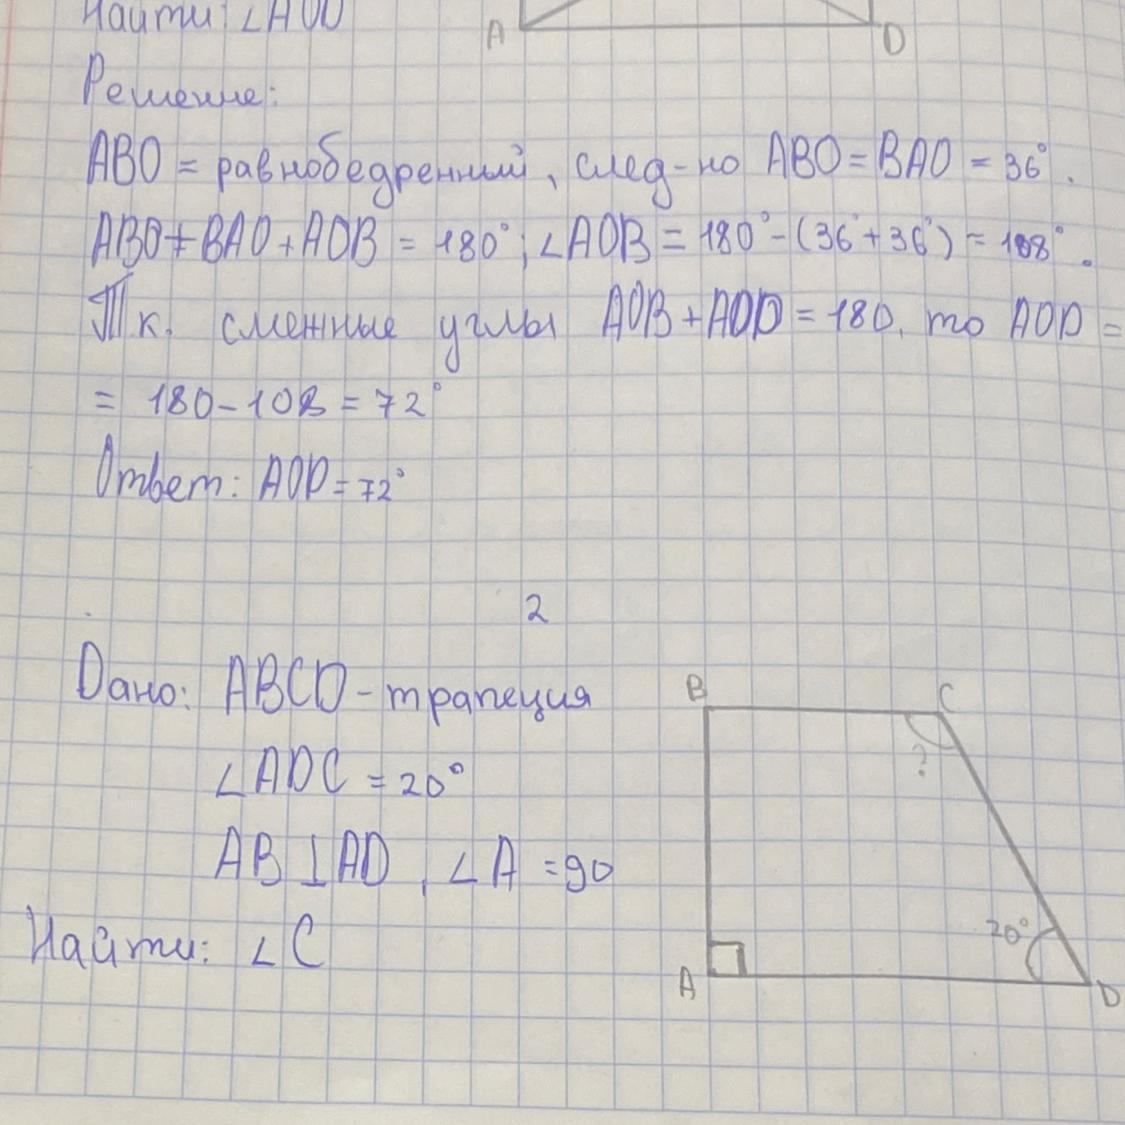 Найти: ∠AOD
A
D
Решение:
ABO = равнобедренный, след-но ABO = BAO = 36°.
ABO + BAO + AOB = 180°; ∠AOB = 180° - (36° + 36°) = 108°.
Т.к. смежные углы AOB + AOD = 180, то AOD =
= 180 - 108 = 72°
Ответ: AOD = 72°
2
Дано: ABCD - трапеция
∠ADC = 20°
AB ⊥ AD, ∠A = 90
Найти: ∠C
B
C
?
20°
A
D